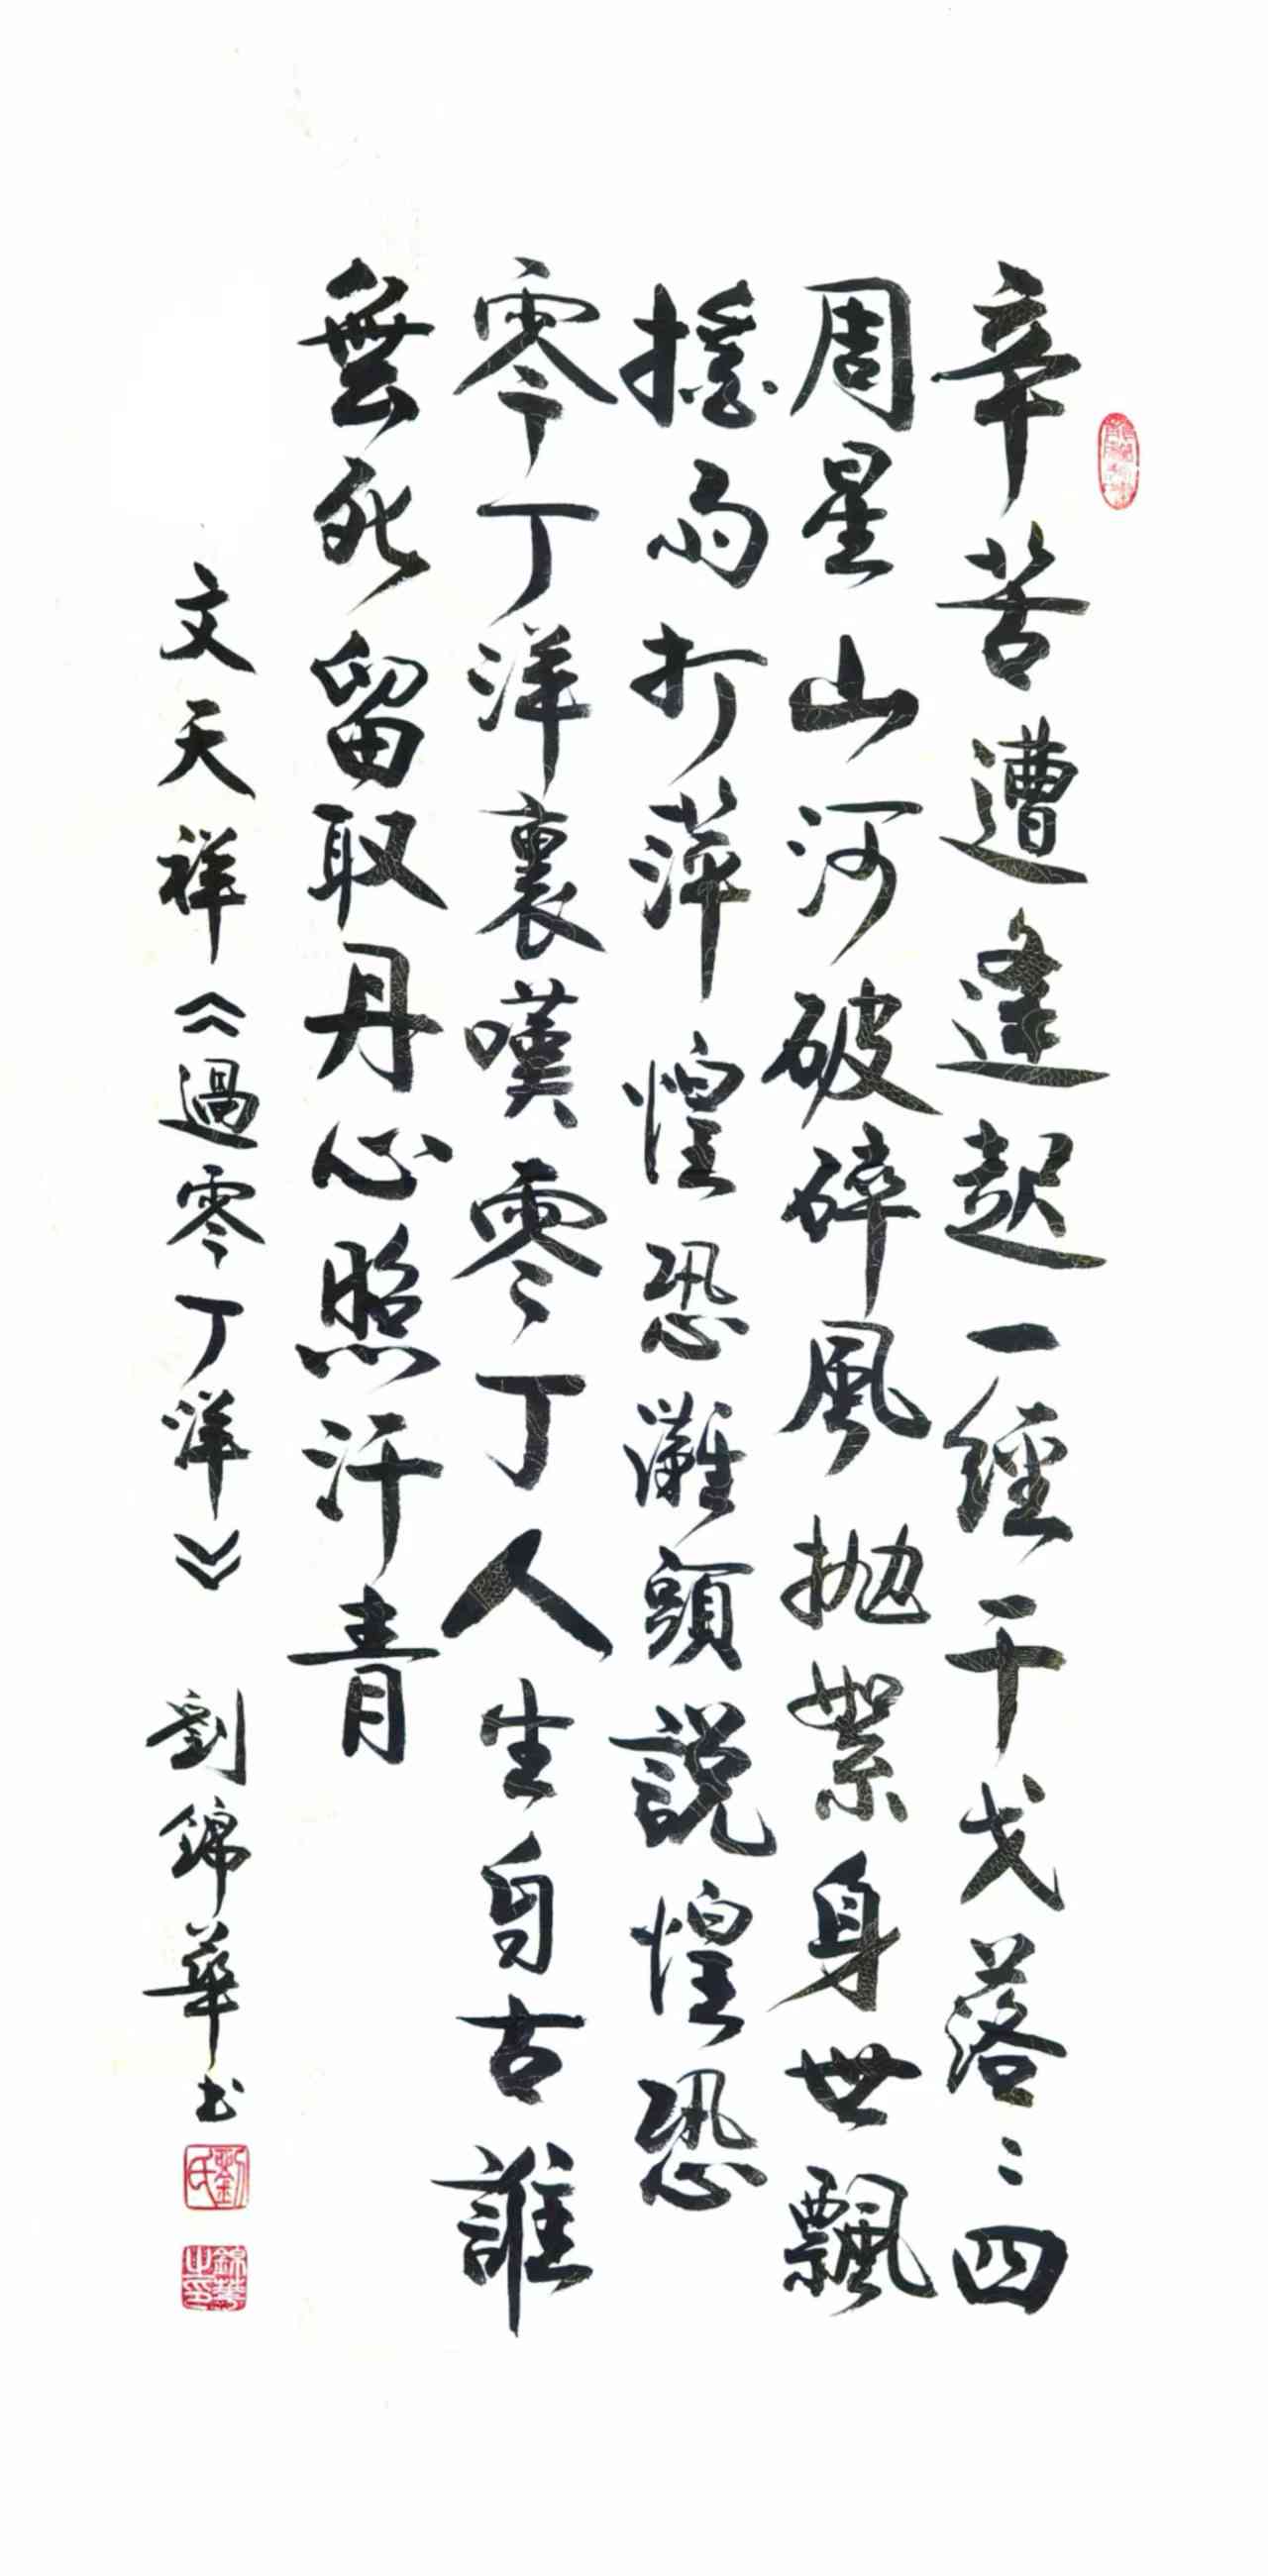 辛苦遭逢起一經干戈落〻四
周星山河破碎風拋絮身世飄
搖雨打萍惶恐灘頭説惶恐
零丁洋裏嘆零丁人生自古誰
無死留取丹心照汗青
文天祥《過零丁洋》 劉錦華书
劉氏
錦華之印